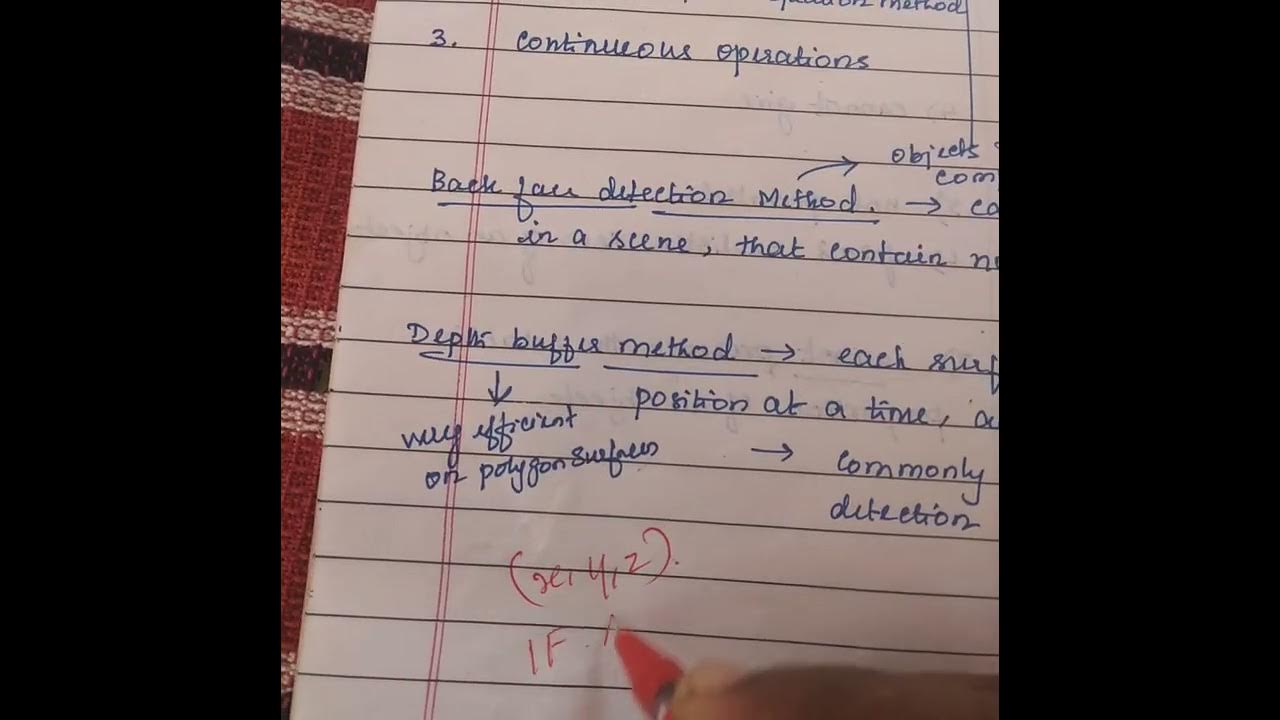 method
3. continuous operations
objects
com
Back face detection Method. → co
in a scene, that contain n
Depth buffer method → each surf
position at a time, a
very efficient
on polygon surfaces
→ commonly
detection
(x, y, z).
IF